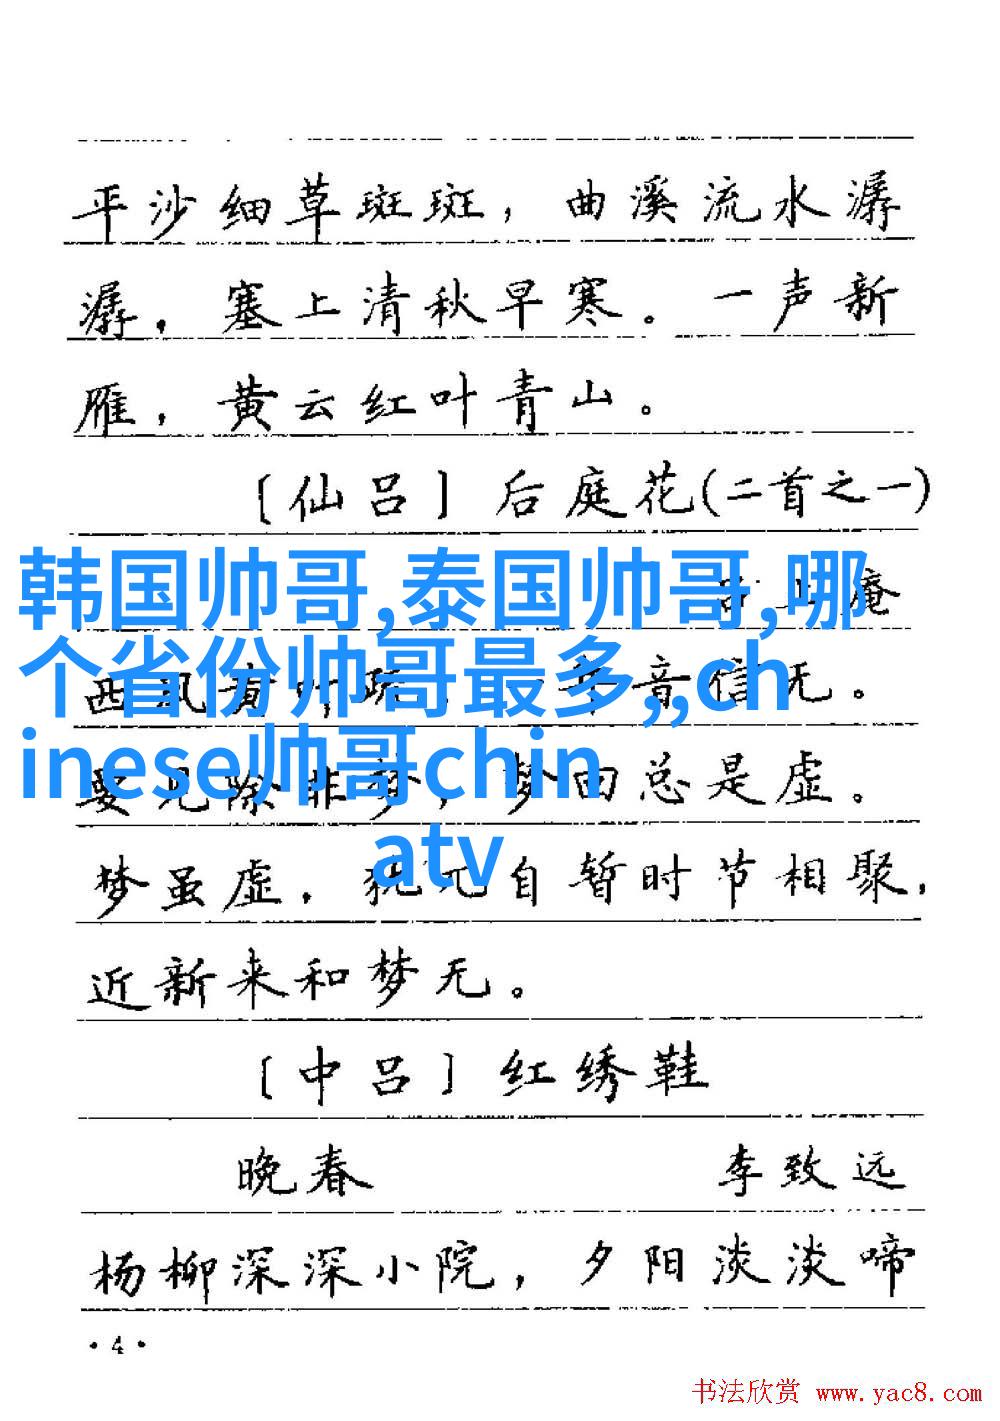 平沙细草斑斑，曲溪流水潺
潺，塞上清秋早寒。一声新
雁，黄云红叶青山。
［仙吕］后庭花（二首之一）
韩国帅哥,泰国帅哥,哪
个省份帅哥最多,,,ch
inese帅哥chin
atv
庵
西风黄叶疏，一年音信无。
要见除非梦，梦回总是虚。
梦虽虚，犹兀自暂时节相聚，
近新来和梦无。
［中吕］红绣鞋
晚春 李致远
杨柳深深小院，夕阳淡淡啼
·4·
书法欣赏 www.yac8.com